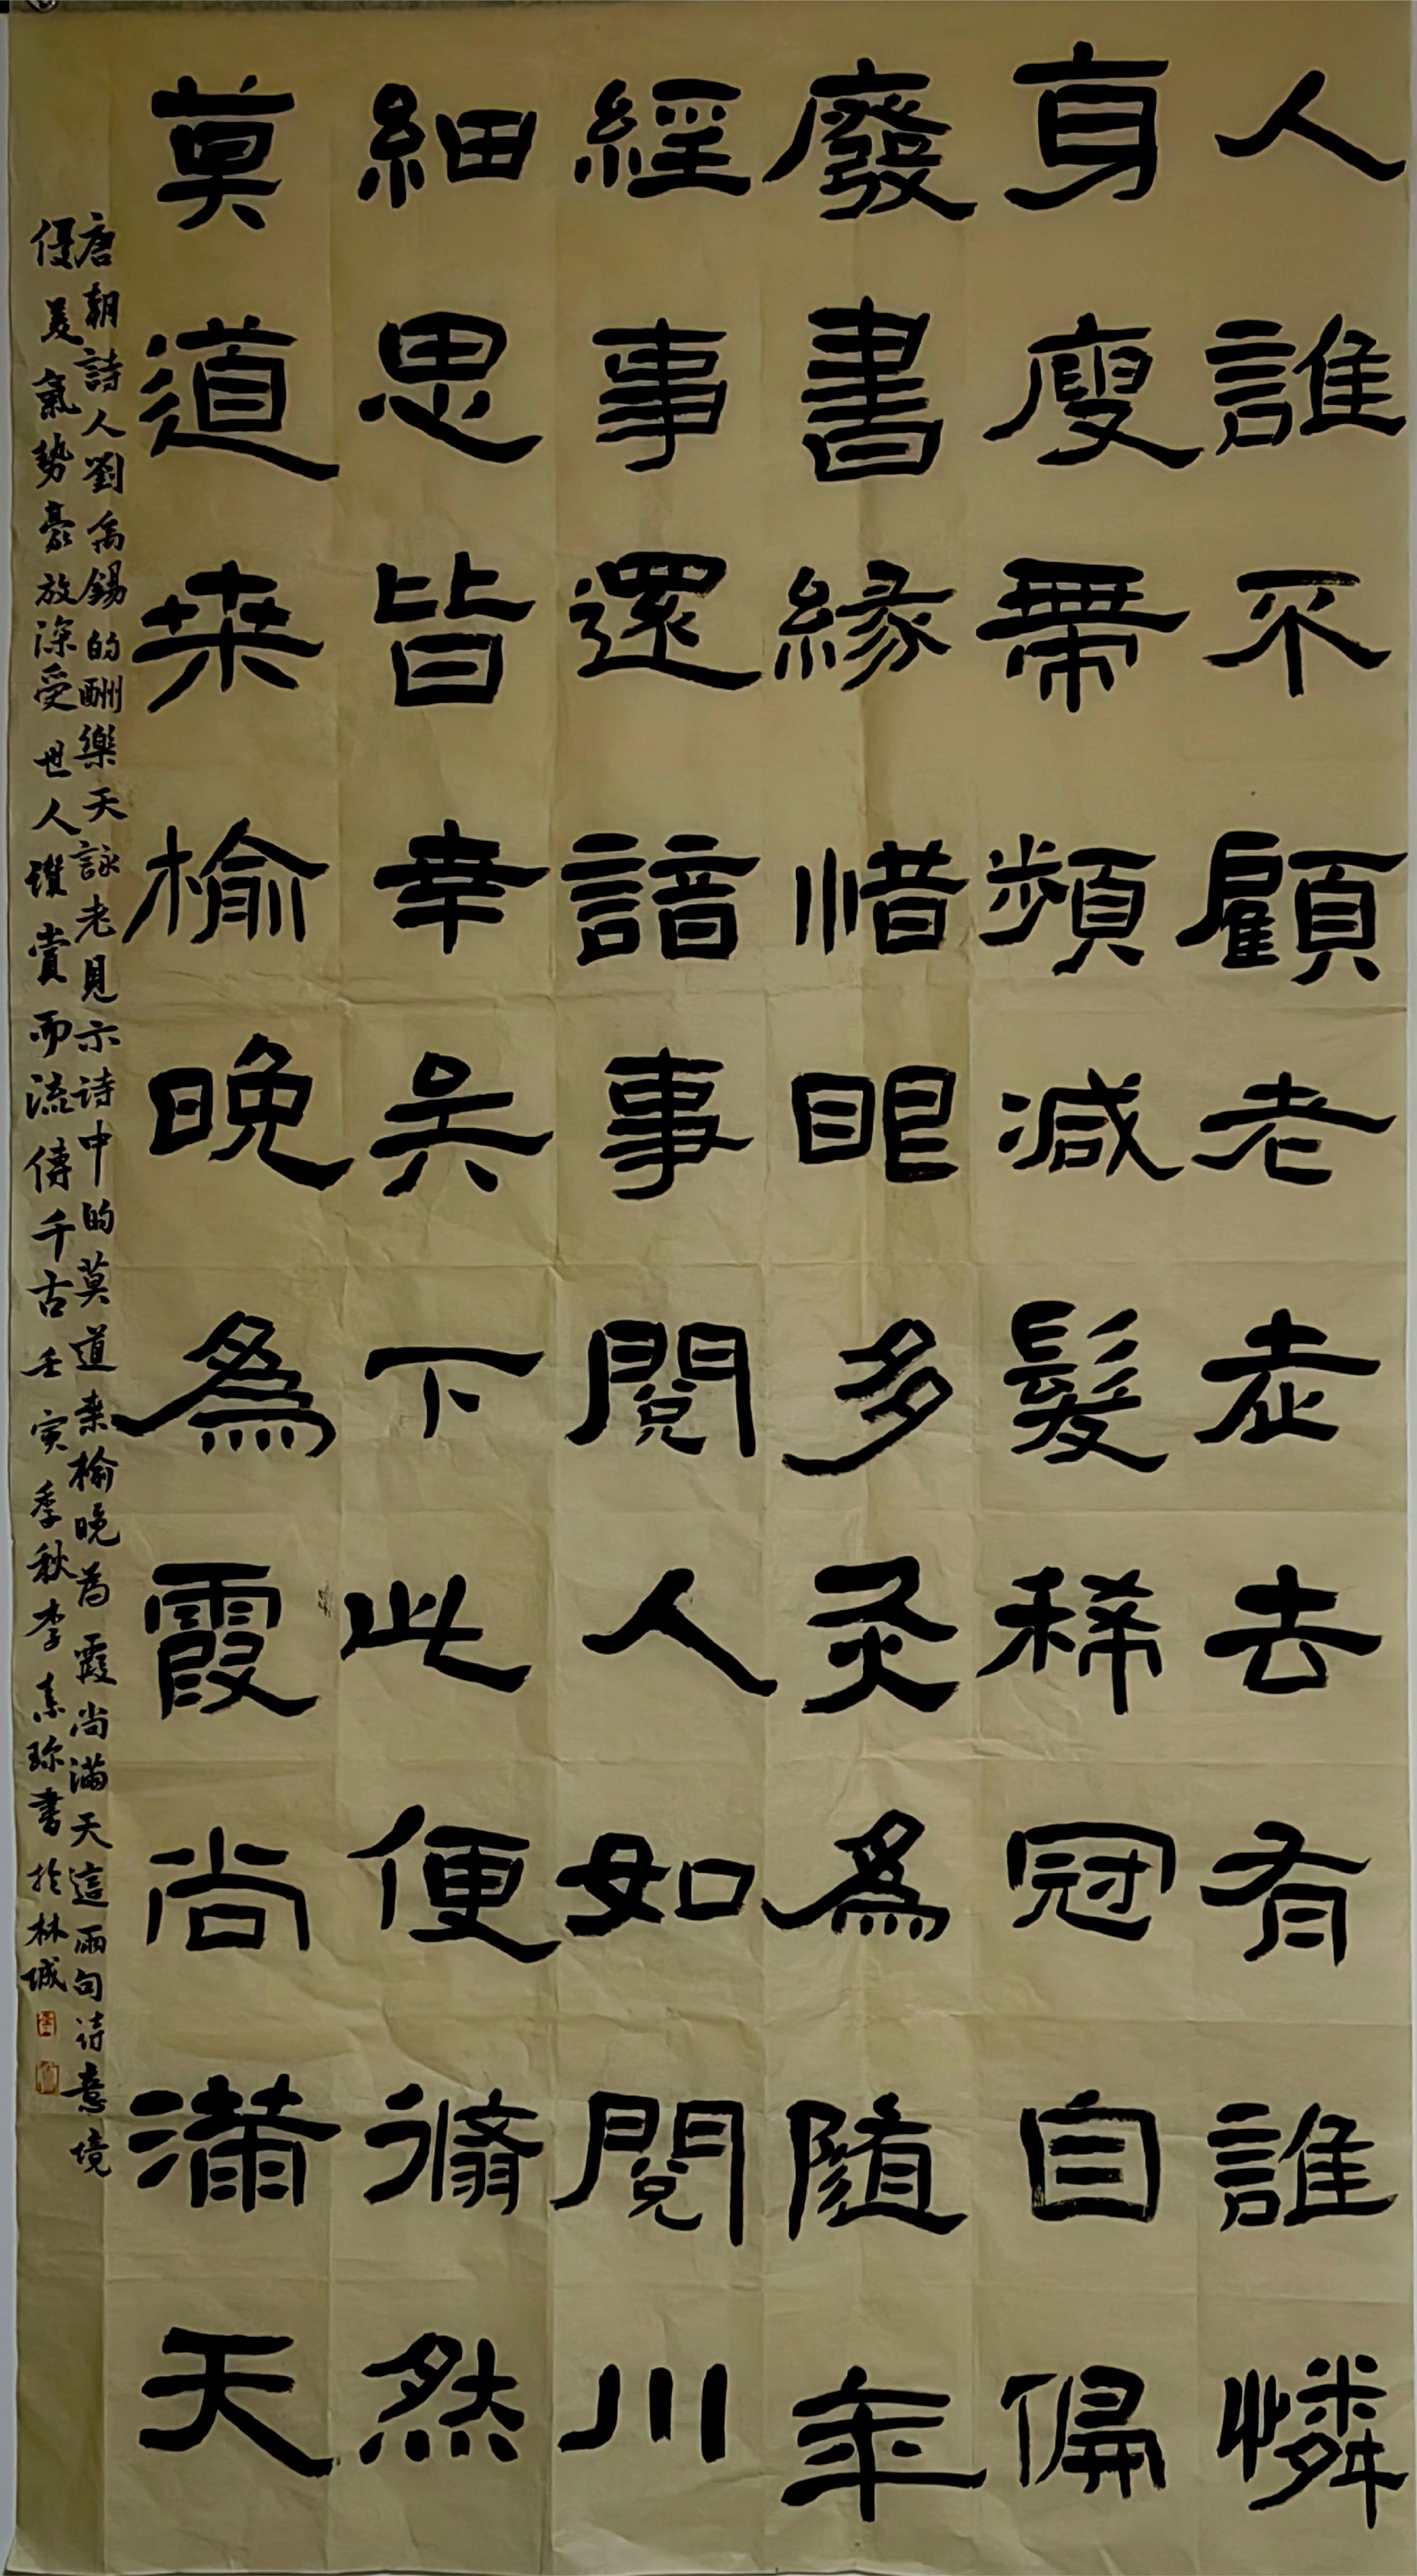 人誰不顧老老去有誰憐
身廋帶頻減髮稀冠自偏
廢書緣惜眼多灸為隨年
經事還諳事閱人如閱川
細思皆幸矣下此便翛然
莫道桒榆晚為霞尚滿天
唐朝詩人劉禹錫的酬樂天詠老見示诗中的莫道桒榆晚為霞尚滿天這兩句诗意境
優美氣勢豪放深受世人讚賞而流傳千古壬寅季秋李素珍書於林城